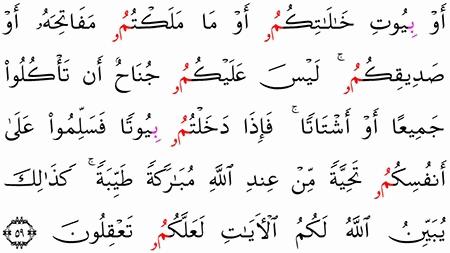 أَوۡ بِيُوتِ خَٰلَٰتِكُمُۥٓ أَوۡ مَا مَلَكۡتُمُۥ مَفَاتِحَهُۥٓ أَوۡ
صَدِيقِكُمُۥۚ لَيۡسَ عَلَيۡكُمُۥ جُنَاحٌ أَن تَأۡكُلُواْ
جَمِيعًا أَوۡ أَشۡتَاتٗاۚ فَإِذَا دَخَلۡتُمُۥ بِيُوتٗا فَسَلِّمُواْ عَلَىٰٓ
أَنفُسِكُمُۥ تَحِيَّةٗ مِّنۡ عِندِ ٱللَّهِ مُبَٰرَكَةٗ طَيِّبَةٗۚ كَذَٰلِكَ
يُبَيِّنُ ٱللَّهُ لَكُمُ ٱلۡأٓيَٰتِ لَعَلَّكُمُۥ تَعۡقِلُونَ ٥٩